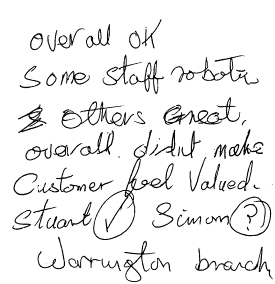 over all OK
Some staff robotic
& others Great,
overall. didnt make
Customer feel Valued.
Stuart ✓ Simon ?
Warrington branch